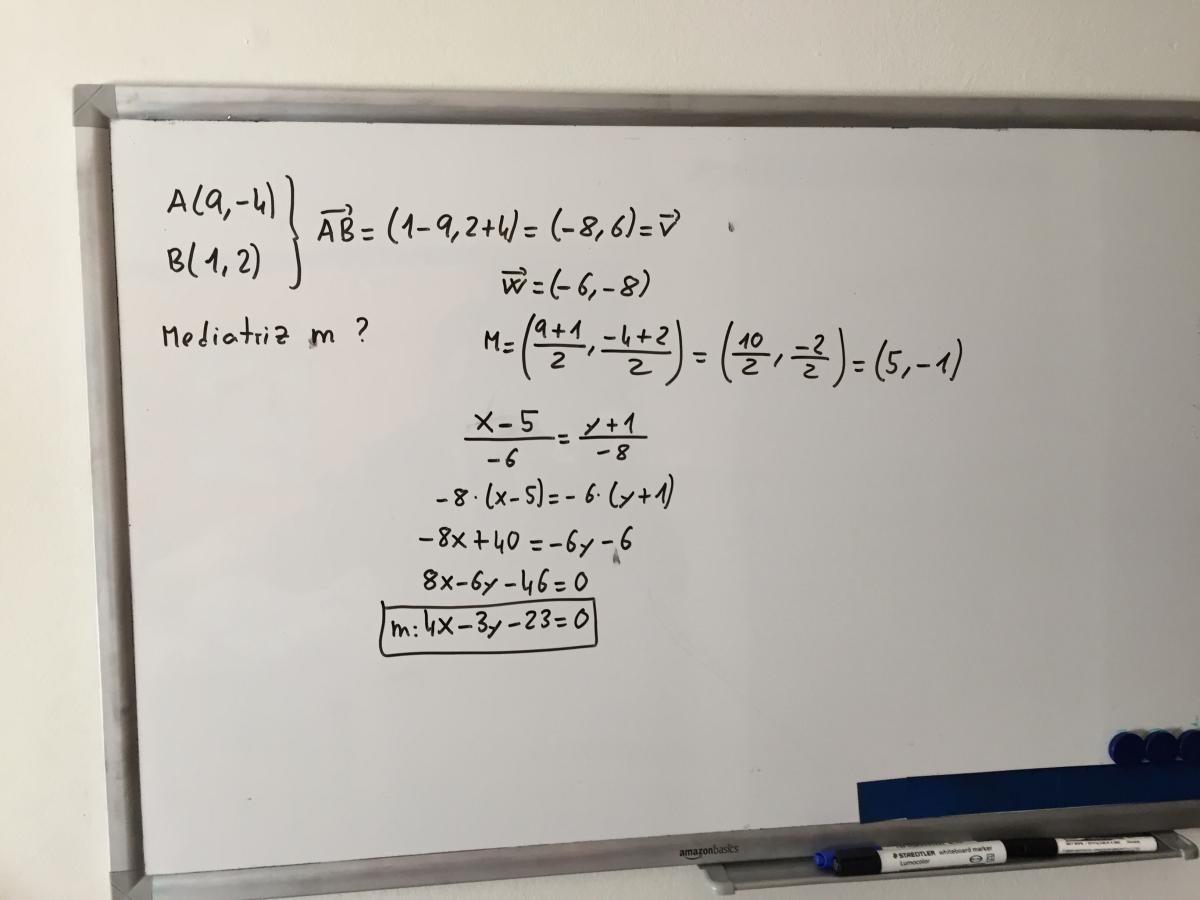 A(9,-4)
B(1,2)
} AB⃗ = (1-9, 2+4) = (-8, 6) = v⃗
w⃗ = (-6, -8)
Mediatriz m ?
M = ((9+1)/2, (-4+2)/2) = (10/2, -2/2) = (5, -1)
(x-5)/-6 = (y+1)/-8
-8·(x-5) = -6·(y+1)
-8x+40 = -6y-6
8x-6y-46=0
m: 4x-3y-23=0
amazonbasics
STAEDTLER whiteboard marker
Lumocolor